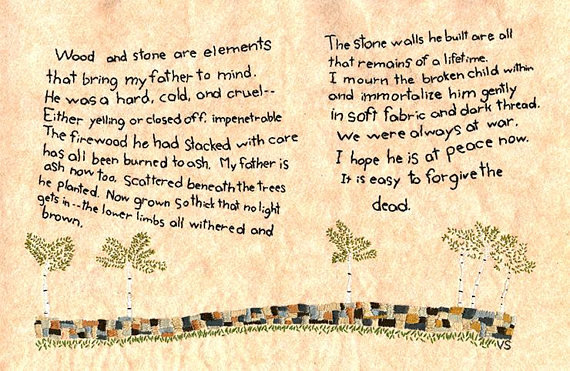 Wood and stone are elements
that bring my father to mind.
He was a hard, cold, and cruel--
Either yelling or closed off, impenetrable
The firewood he had stacked with care
has all been burned to ash. My father is
ash now too, scattered beneath the trees
he planted. Now grown so thick that no light
gets in--the lower limbs all withered and
brown.
The stone walls he built are all
that remains of a lifetime.
I mourn the broken child within
and immortalize him gently
in soft fabric and dark thread.
We were always at war.
I hope he is at peace now.
It is easy to forgive the
dead.
VS